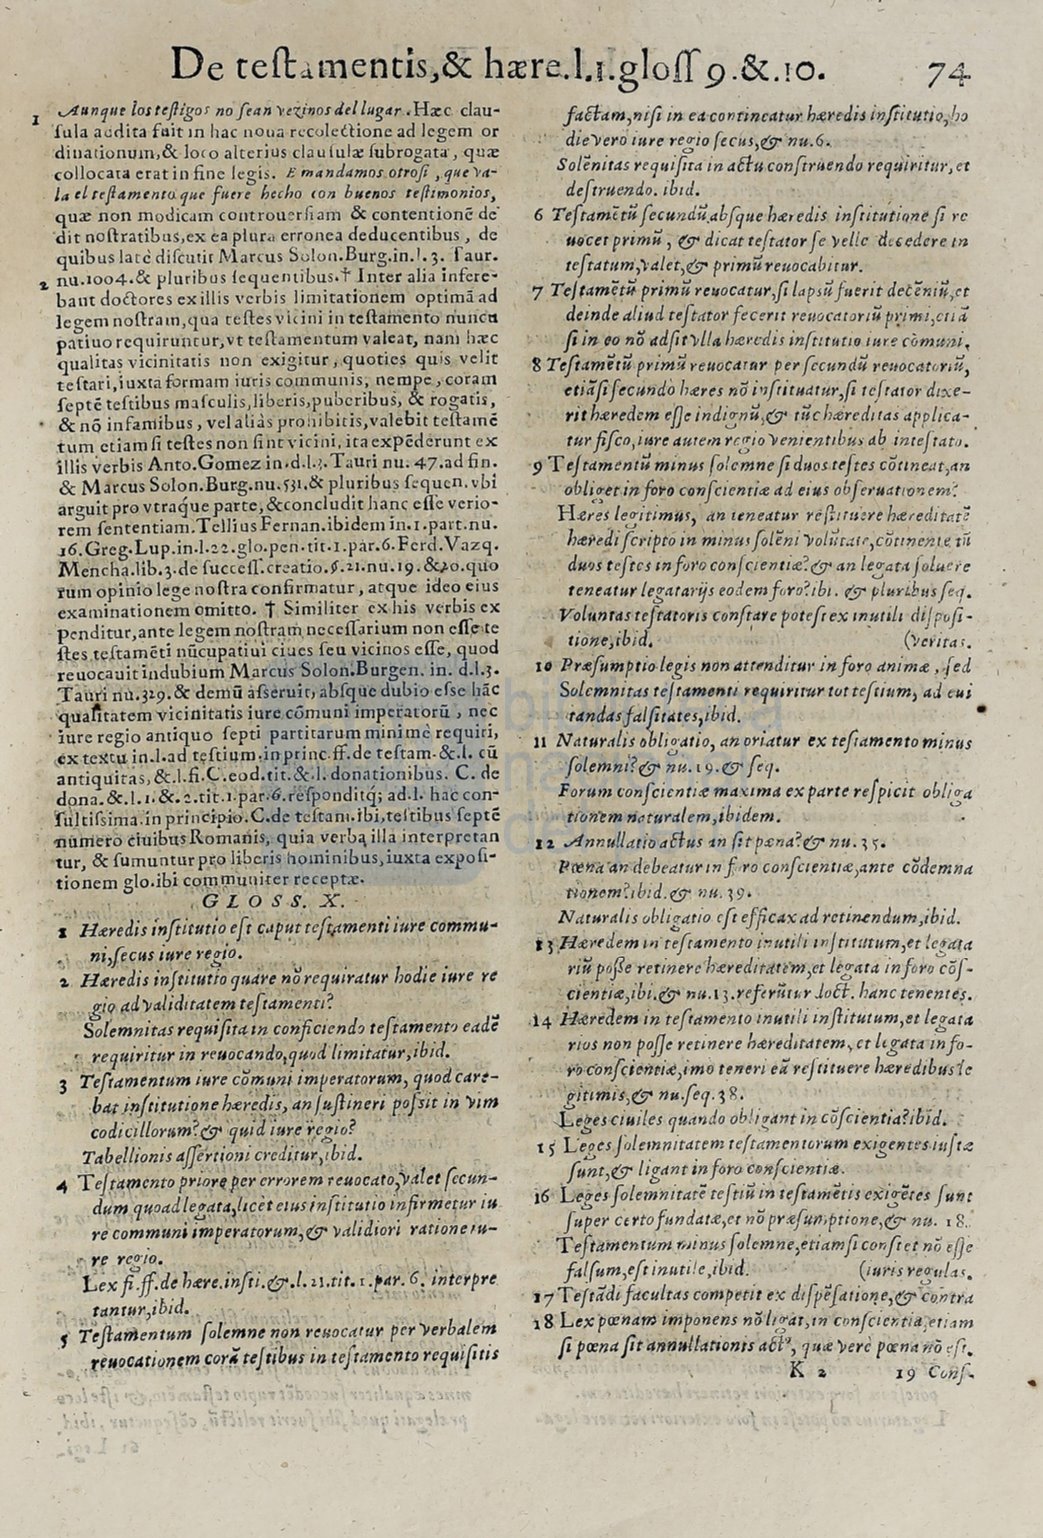 De testamentis,& hære.l.1.gloss 9.&.10. 74
1 Aunque los testigos no sean vezinos del lugar. Hæc clau-
sula addita fuit in hac noua recolectione ad legem or
dinationum,& loco alterius clausulæ subrogata, quæ
collocata erat in fine legis. E mandamos otrosi, que va-
la el testamento que fuere hecho con buenos testimonios,
quæ non modicam controuersiam & contentionē de
dit nostratibus,ex ea plura erronea deducentibus, de
quibus latè discutit Marcus Solon.Burg.in.l.3. Taur.
2 nu.1004.& pluribus sequentibus.† Inter alia infere-
bant doctores ex illis verbis limitationem optimā ad
legem nostram,qua testes vicini in testamento nuncu
patiuo requiruntur,vt testamentum valeat, nam hæc
qualitas vicinitatis non exigitur, quoties quis velit
testari,iuxta formam iuris communis, nempe, coram
septē testibus masculis,liberis,puberibus, & rogatis,
& nō infamibus, vel aliàs prohibitis,valebit testamē
tum etiam si testes non sint vicini, ita expēderunt ex
illis verbis Anto.Gomez in.d.l.3.Tauri nu.47.ad fin.
& Marcus Solon.Burg.nu.531.& pluribus sequen.vbi
arguit pro vtraque parte,&concludit hanc esse verio-
rem sententiam.Tellius Fernan.ibidem in.1.part.nu.
16.Greg.Lup.in.l.22.glo.pen.tit.1.par.6.Ferd.Vazq.
Mencha.lib.3.de success.creatio.§.21.nu.19.&20.quo
rum opinio lege nostra confirmatur, atque ideo eius
examinationem omitto. † Similiter ex his verbis ex
penditur,ante legem nostram necessarium non esse te
stes testamēti nūcupatiui ciues seu vicinos esse, quod
reuocauit indubium Marcus Solon.Burgen. in. d.l.3.
Tauri nu.329.& demū asseruit, absque dubio esse hāc
qualitatem vicinitatis iure cōmuni imperatorū, nec
iure regio antiquo septi partitarum minimè requiri,
ex textu in.l.ad testium.in princ.ff.de testam.&.l. cū
antiquitas,&.l.fi.C.eod.tit.&.l.donationibus. C. de
dona.&.l.1.&.2.tit.1.par.6.responditq; ad.l. hac con-
sultissima.in principio.C.de testam.ibi,testibus septē
numero ciuibus Romanis, quia verba illa interpretan
tur, & sumuntur pro liberis hominibus,iuxta exposi-
tionem glo.ibi communiter receptæ.
GLOSS. X.
1 Hæredis institutio est caput testamenti iure commu-
ni,secus iure regio.
2 Hæredis institutio quare nō requiratur hodie iure re
gio ad validitatem testamenti?
Solemnitas requisita in conficiendo testamento eadē
requiritur in reuocando,quod limitatur,ibid.
3 Testamentum iure cōmuni imperatorum, quod care-
bat institutione hæredis, an sustineri possit in vim
codicillorum?& quid iure regio?
Tabellionis assertioni creditur,ibid.
4 Testamento priore per errorem reuocato,valet secun-
dum quoad legata,licèt eius institutio infirmetur iu
re communi imperatorum,& validiori ratione iu-
re regio.
Lex fi.ff.de hære.insti.&.l.21.tit.1.par.6. interpre
tantur,ibid.
5 Testamentum solemne non reuocatur per verbalem
reuocationem corā testibus in testamento requisitis
factam,nisi in ea contineatur hæredis institutio,ho
die vero iure regio secus,& nu.6.
Solēnitas requisita in actu construendo requiritur,et
destruendo. ibid.
6 Testamētū secundū absque hæredis institutione si re
uocet primū, & dicat testator se velle decedere in
testatum,valet,& primū reuocabitur.
7 Testamētū primū reuocatur,si lapsū fuerit decēniū,et
deinde aliud testator fecerit reuocatoriū primi,etiā
si in eo nō adsit vlla hæredis institutio iure cōmuni.
8 Testamētū primū reuocatur per secundū reuocatoriū,
etiā si secundo hæres nō instituatur,si testator dixe-
rit hæredem esse indignū,& tūc hæreditas applica-
tur fisco,iure autem regio venientibus ab intestato.
9 Testamentū minus solemne si duos testes cōtineat,an
obliget in foro conscientiæ ad eius obseruationem?
Hæres legitimus, an teneatur restituere hæreditatē
hæredi scripto in minus solēni volūtate,cōtinente tū
duos testes in foro conscientiæ?& an legata soluere
teneatur legatarijs eodem foro?ibi. & pluribus seq.
Voluntas testatoris constare potest ex inutili disposi-
tione,ibid. (veritas.
10 Præsumptio legis non attenditur in foro animæ, sed
Solemnitas testamenti requiritur tot testium, ad eui
tandas falsitates,ibid.
11 Naturalis obligatio, an oriatur ex testamento minus
solemni?& nu.19.& seq.
Forum conscientiæ maxima ex parte respicit obliga
tionem naturalem,ibidem.
12 Annullatio actus an sit pæna?& nu.35.
Pœna an debeatur in foro conscientiæ,ante cōdemna
tionem?ibid.& nu.39.
Naturalis obligatio est efficax ad retinendum,ibid.
13 Hæredem in testamento inutili institutum,et legata
riū posse retinere hæreditatem,et legata in foro cōs-
cientiæ,ibi.& nu.13.referūtur doct. hanc tenentes.
14 Hæredem in testamento inutili institutum,et legata
rios non posse retinere hæreditatem, et legata in fo-
ro conscientiæ,imo teneri eā restituere hæredibus le
gitimis,& nu.seq.38.
Leges ciuiles quando obligant in cōscientia?ibid.
15 Leges solemnitatem testamentorum exigentes iustæ
sunt,& ligant in foro conscientiæ.
16 Leges solemnitatē testiū in testamētis exigētes sunt
super certo fundatæ,et nō præsumptione,& nu. 18.
Testamentum minus solemne,etiam si constet nō esse
falsum,est inutile,ibid. (iuris regulas.
17 Testādi facultas competit ex dispēsatione,& contra
18 Lex pœnam imponens nō ligat,in conscientia,etiam
si pœna sit annullationis act⁹, quæ verè pœna nō est.
K 2 19 Cons-